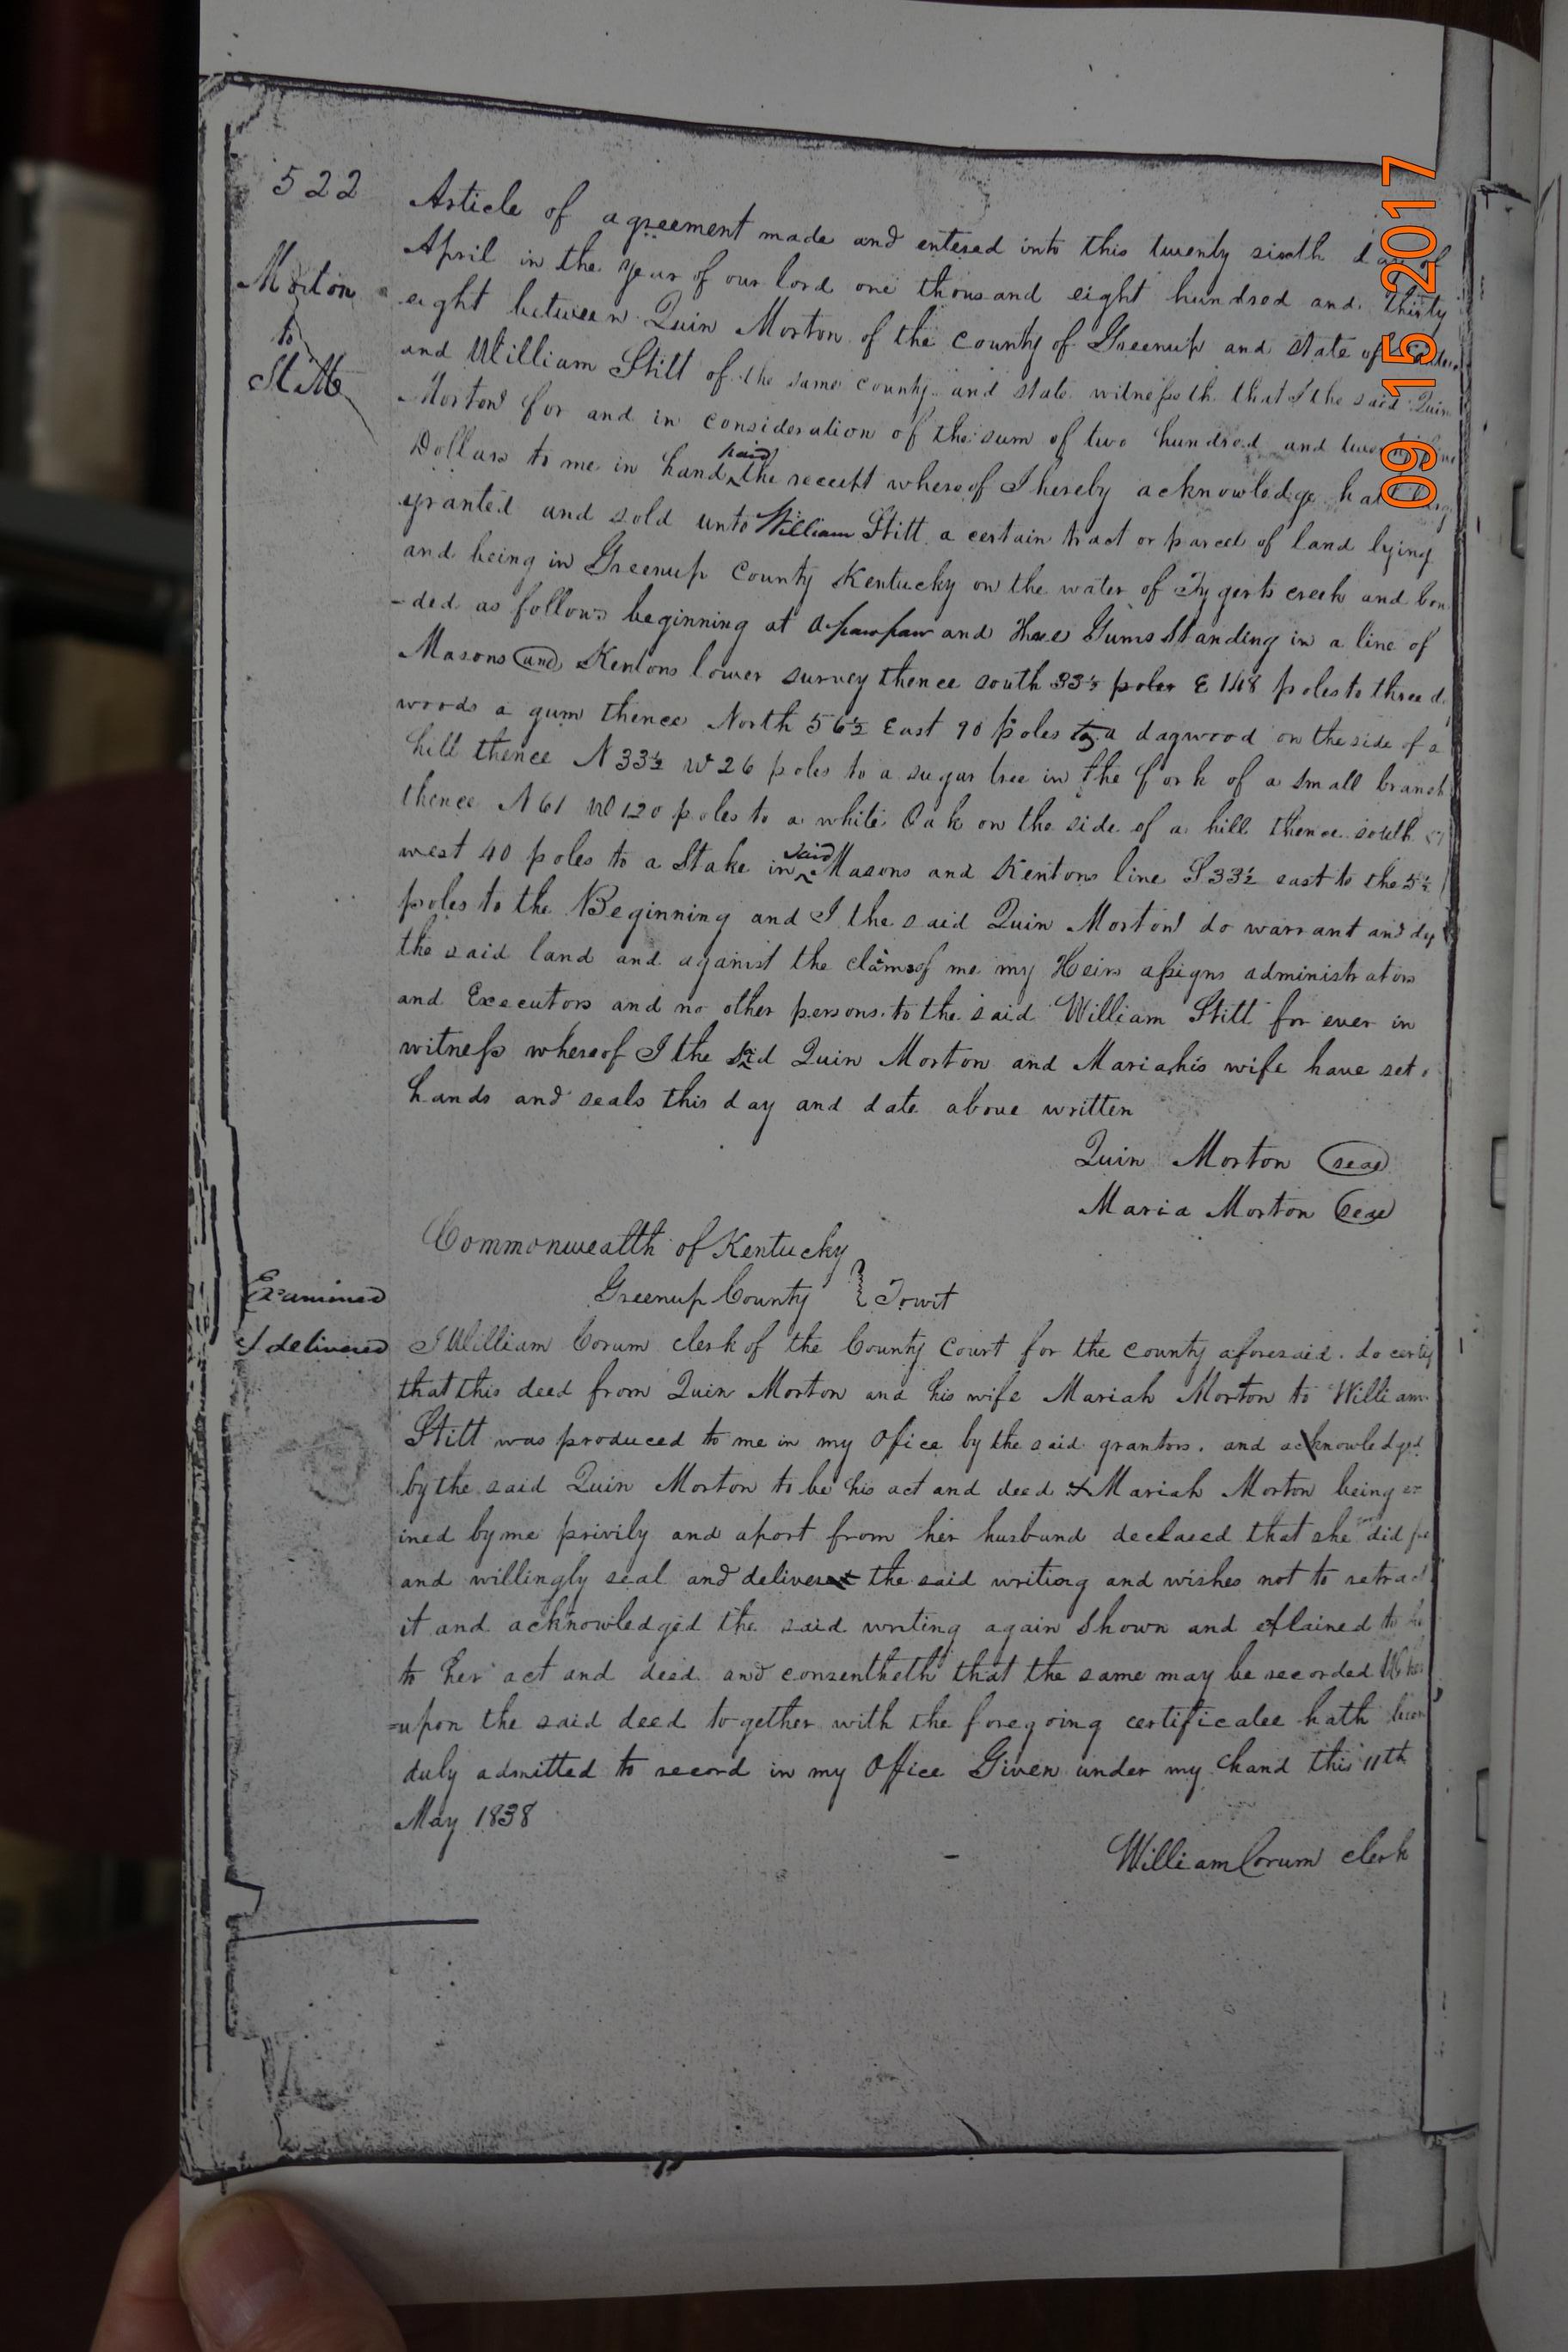 522
Article of agreement made and entered into this twenty sixth day of
April in the year of our lord one thousand eight hundred and thirty
Morton
to
Stitt
eight between Quin Morton of the County of Greenup and state of
and William Stitt of the same county and state witnesseth that I the said Quin
Morton for and in consideration of the sum of two hundred and
Dollars to me in hand paid the receipt whereof I hereby acknowledge hath
granted and sold unto William Stitt a certain tract or parcel of land lying
and being in Greenup County Kentucky on the water of Tygerts creek and bon
-ded as follows beginning at a pawpaw and three Gums Standing in a line of
Masons and Kentons lower survey thence south 33½ poles E 148 poles to three d
woods a gum thence North 56½ East 90 poles to a dagwood on the side of a
hill thence N 33½ W 26 poles to a sugar tree in the fork of a small branch
thence N 61 W 120 poles to a white Oak on the side of a hill thence south
west 40 poles to a Stake in said Masons and Kentons line S 33½ east to the
poles to the Beginning and I the said Quin Morton do warrant and
the said land and against the claims of me my Heirs assigns administrators
and Executors and no other persons to the said William Stitt for ever in
witness whereof I the said Quin Morton and Mariah his wife have set
hands and seals this day and date above written
Quin Morton (seal)
Maria Morton (seal)
Commonwealth of Kentucky
Greenup County } Towit
Examined
& delivered
I William Corum clerk of the County Court for the county aforesaid do certify
that this deed from Quin Morton and his wife Mariah Morton to William
Stitt was produced to me in my Ofice by the said grantors and acknowledged
by the said Quin Morton to be his act and deed & Mariah Morton being ex
ined by me privily and apart from her husband declared that she did
and willingly seal and deliver the said writing and wishes not to retract
it and acknowledged the said writing again shown and explained to
to her act and deed and consentheth that the same may be recorded
=upon the said deed together with the foregoing certificatee hath been
duly admitted to record in my Office Given under my hand this 11th
May 1838
William Corum clerk
09 15 2017